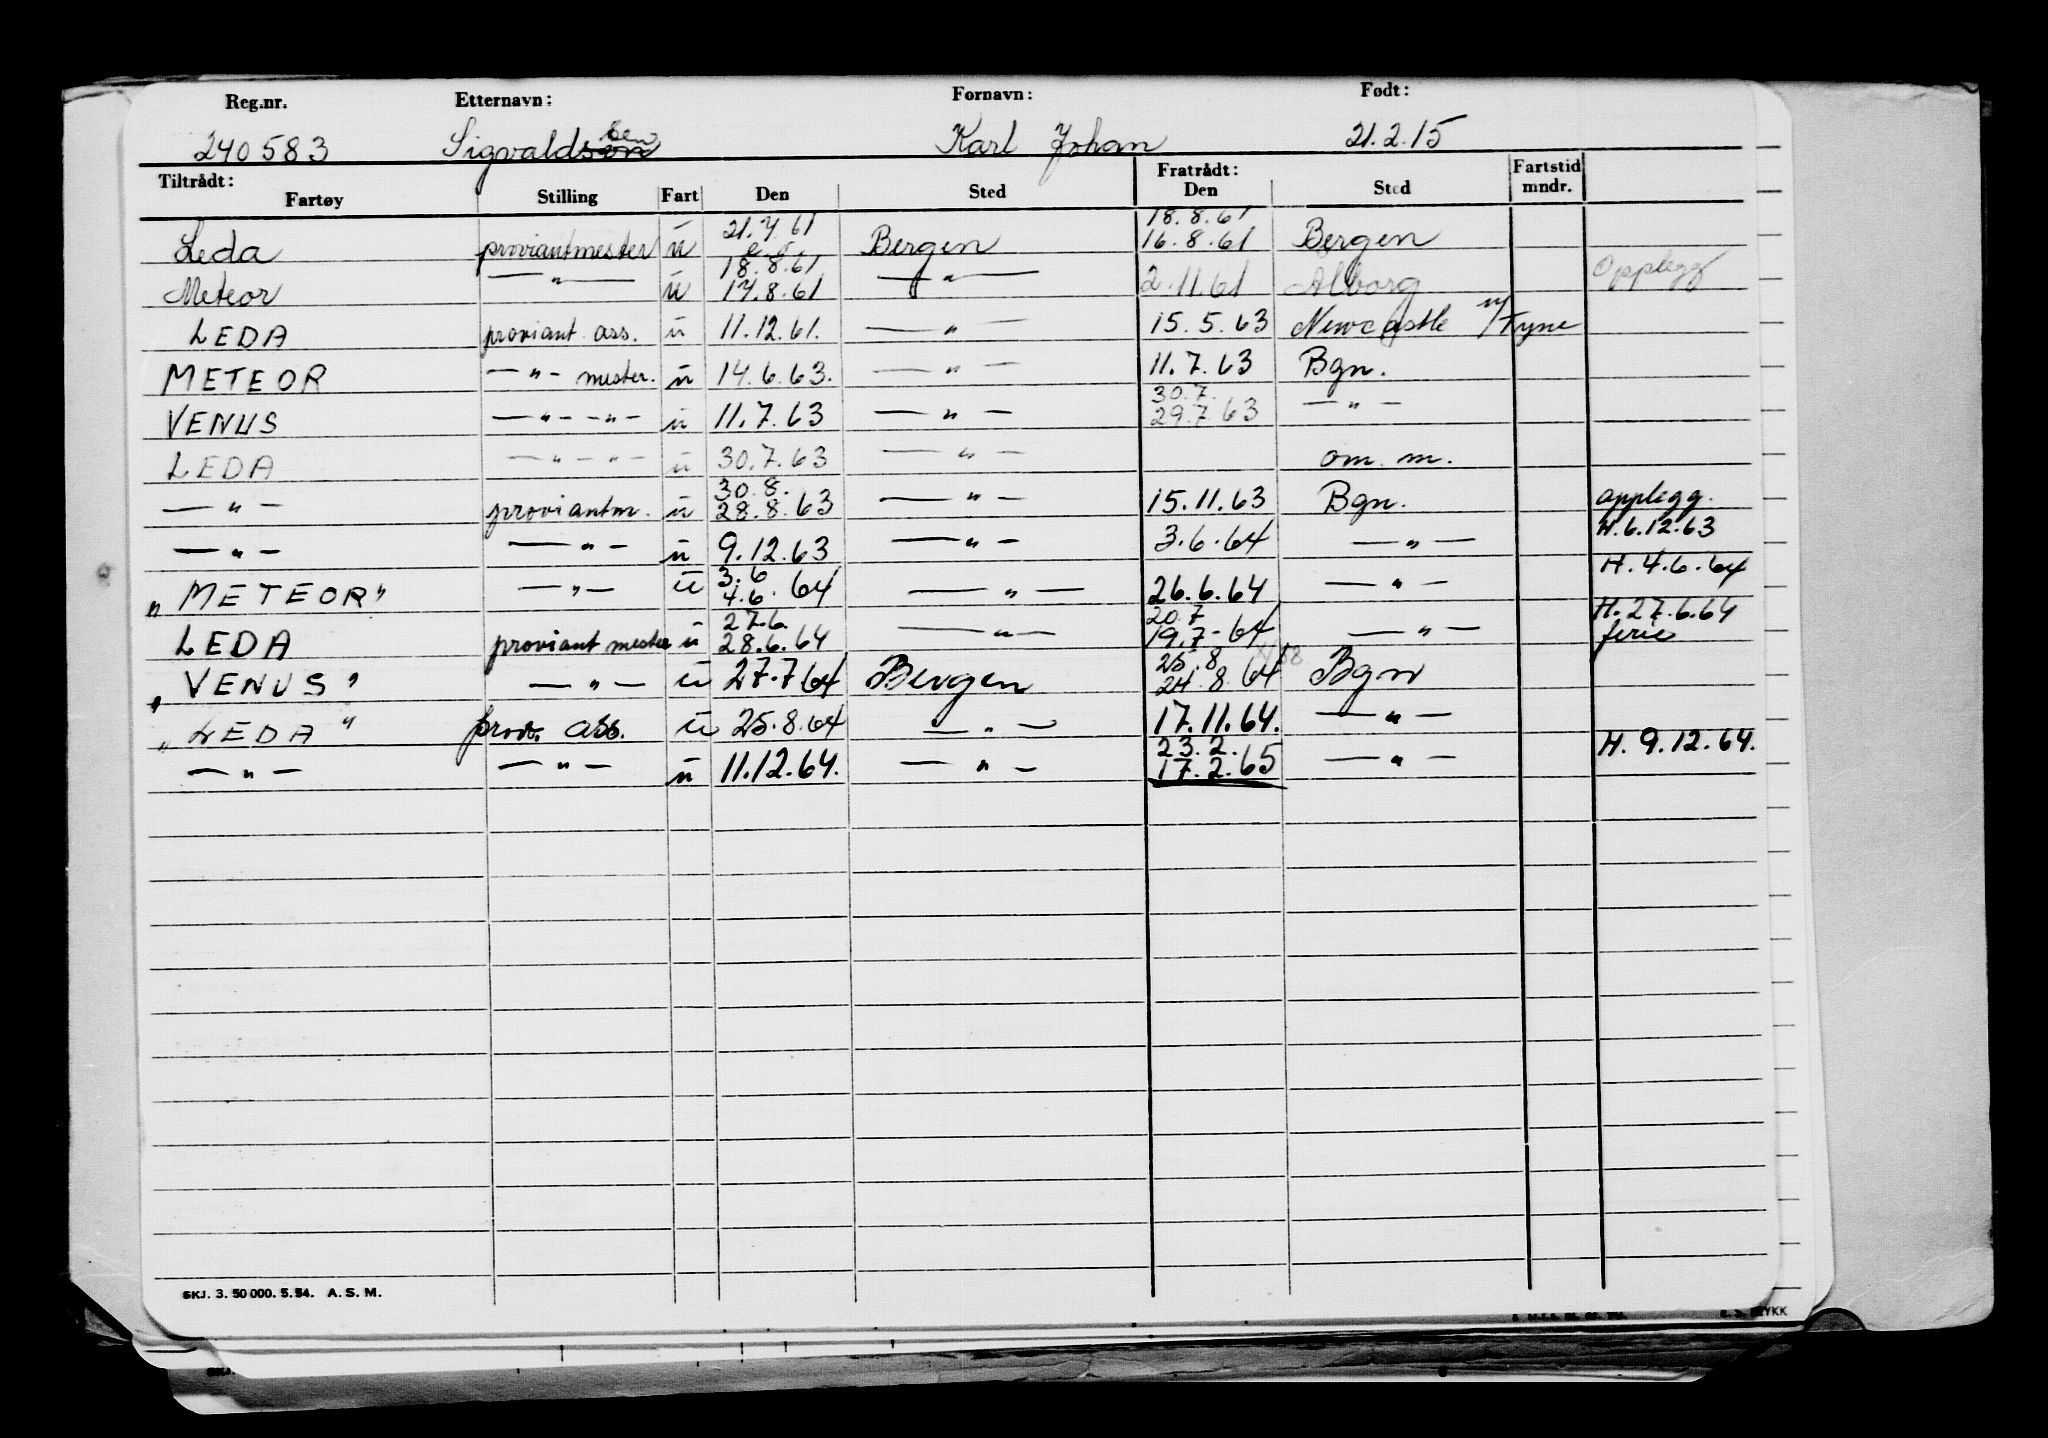 Reg.nr. Etternavn: Fornavn: Født:
240583 Sigvaldson sen Karl Johan 21.2.15
Tiltrådt: Fratrådt: Fartstid
Fartøy Stilling Fart Den Sted Den Sted mndr.
21.7.61 18.8.61
Leda proviantmester u Bergen 16.8.61 Bergen
18.8.61
Meteor — " — u 17.8.61 — " — 2.11.61 Alborg Opplegg
LEDA proviant ass. u 11.12.61. — " — 15.5.63 Newcastle u/Tyne
METEOR — " — mester. u 14.6.63. — " — 11.7.63 Bgn.
30.7.
VENUS — " — — " — u 11.7.63 — " — 29.7.63 — " —
LEDA — " — " — u 30.7.63 — " — om. m.
30.8.
— " — proviantm. u 28.8.63 — " — 15.11.63 Bgn. opplegg.
— " — — " — u 9.12.63 — " — 3.6.64 — " — H.6.12.63
3.6 H.4.6.64
" METEOR " — " — u 4.6.64 — " — 26.6.64 — " —
27.6. 20.7 H.27.6.64
LEDA proviant mester u 28.6.64 — " — 19.7-64 — " — ferie
25.8
" VENUS " — " — u 27.7 64 Bergen 24.8.64 Bgn
" LEDA " prov. ass. u 25.8.64 — " — 17.11.64. — " —
23.2.
— " — — " — u 11.12.64. — " — 17.2.65 — " — H. 9.12.64.
SKJ. 3. 50 000. 5. 54. A. S. M.